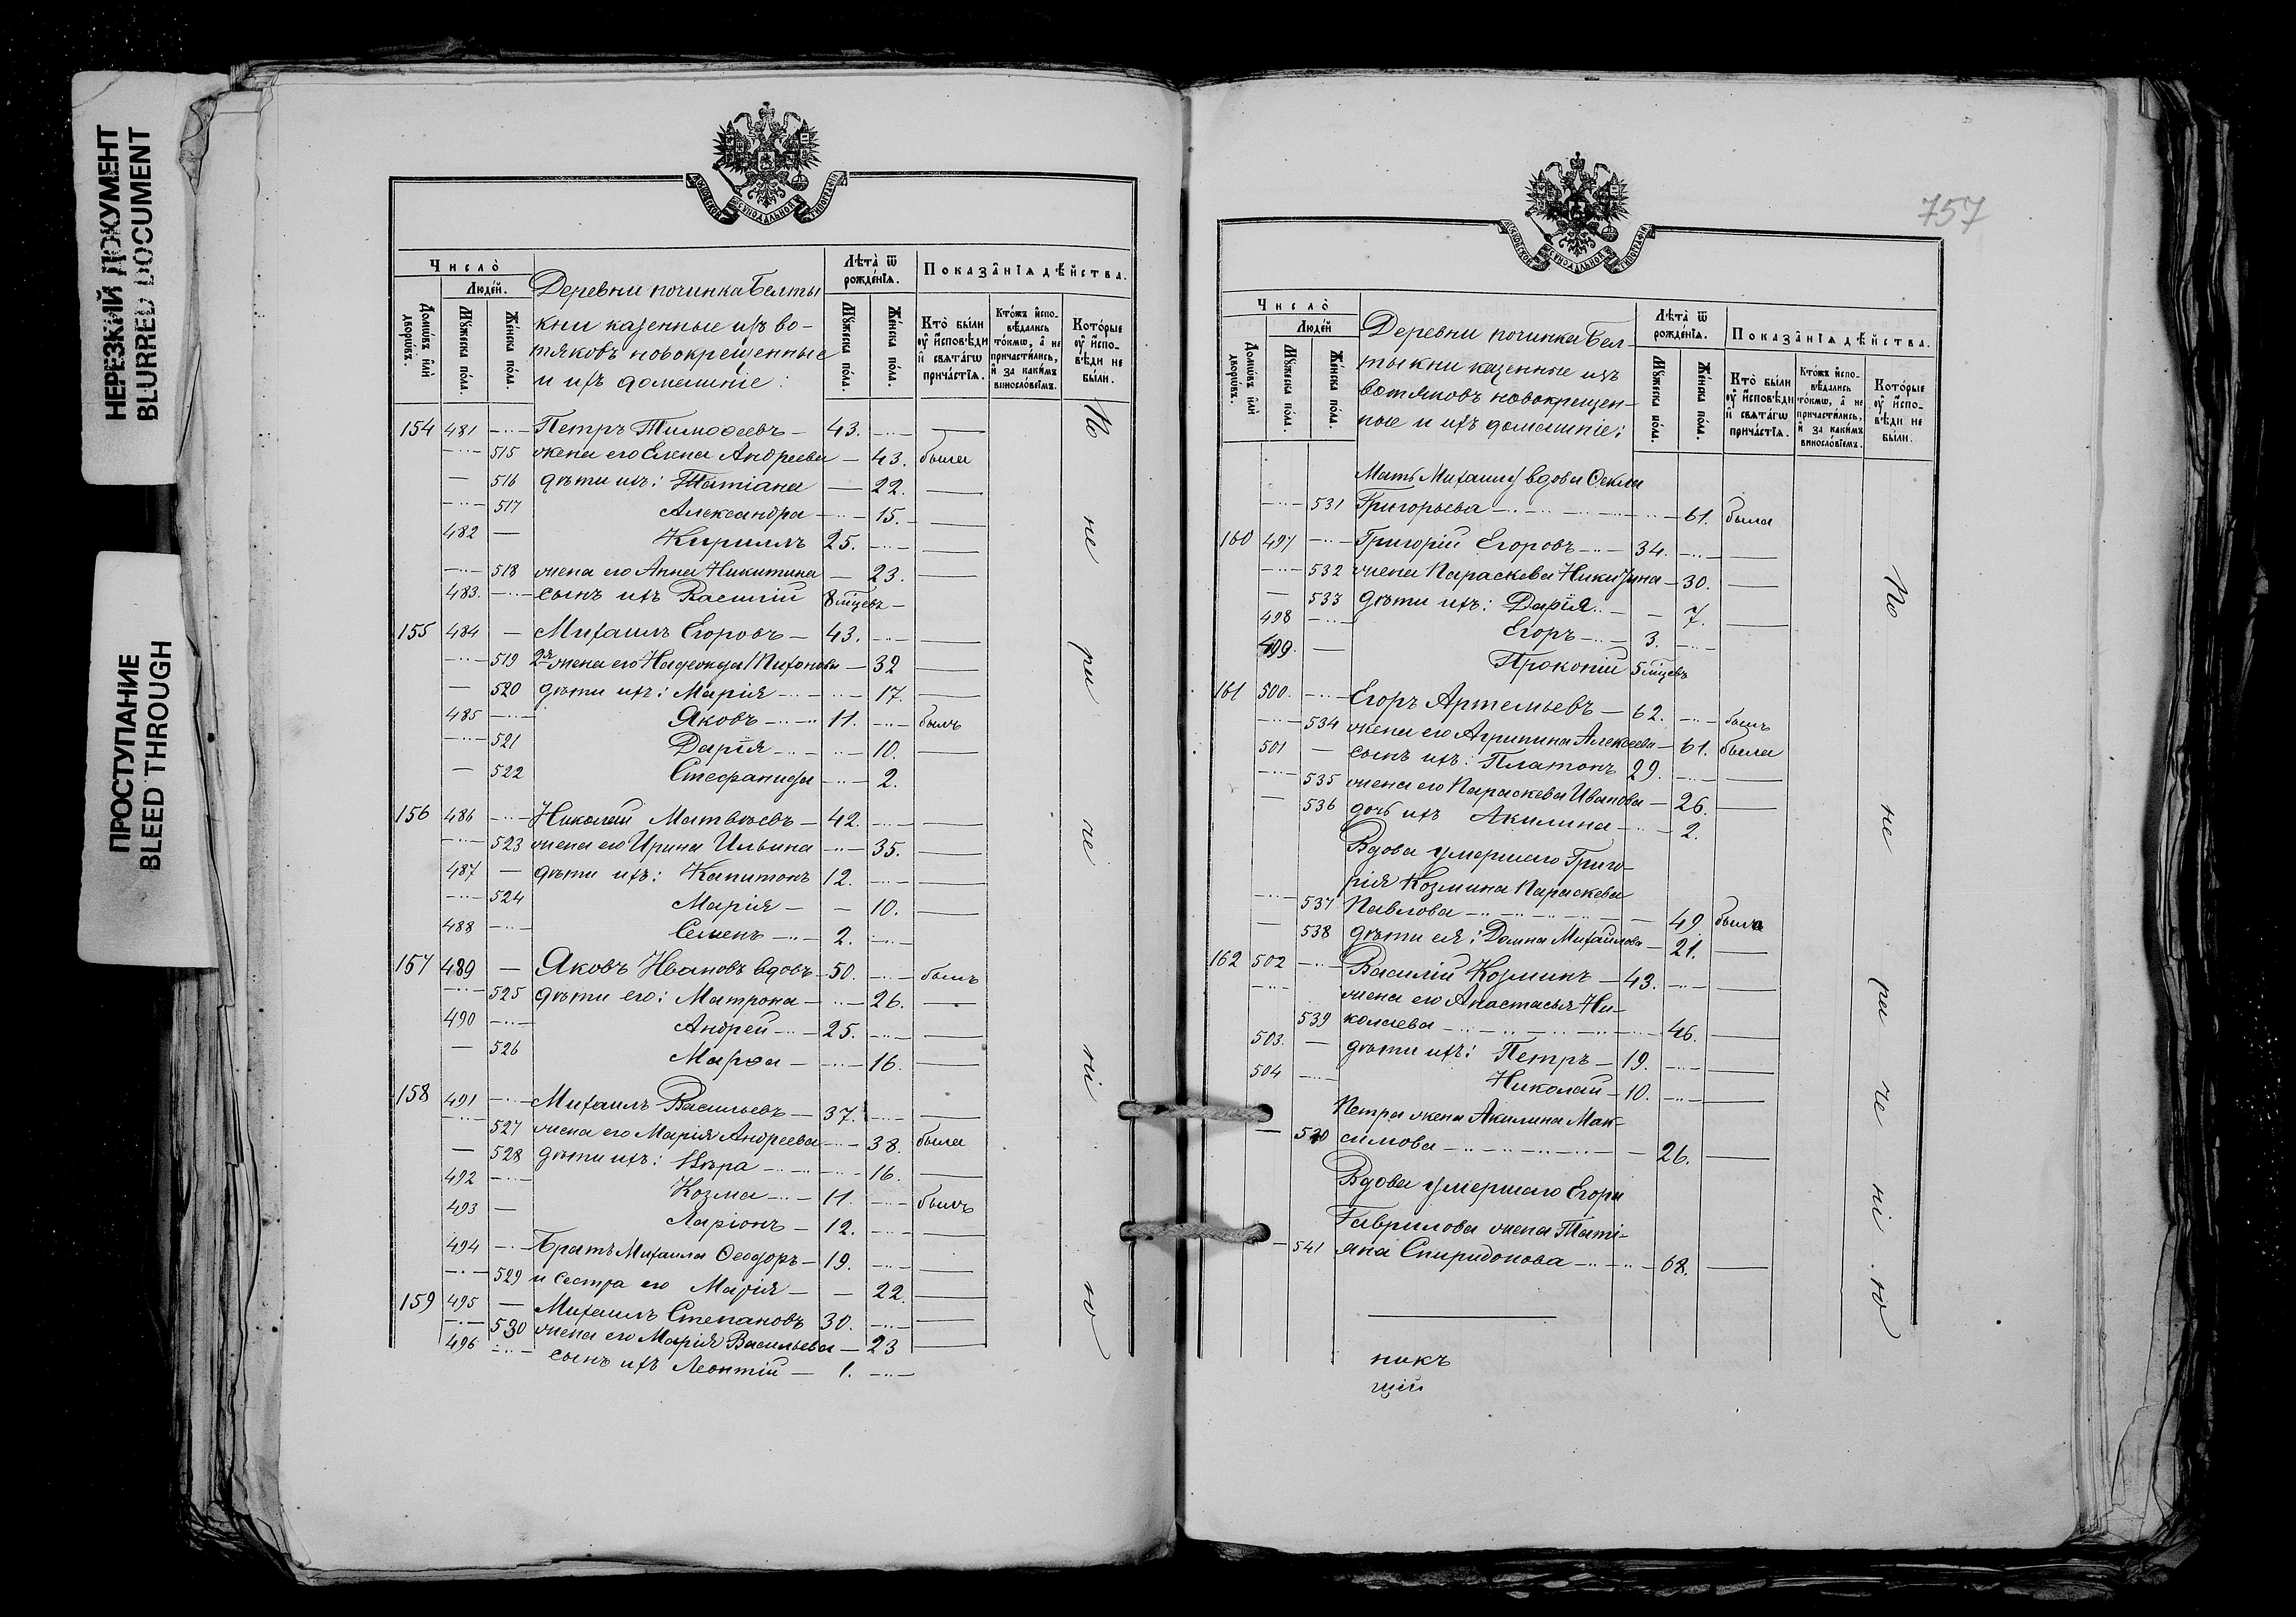 НЕРЕЗКИЙ ДОКУМЕНТ
BLURRED DOCUMENT
ПРОСТУПАНИЕ
BLEED THROUGH
МОСКОВСКОЙ СѴНОДАЛЬНОЙ ТИПОГРАФІИ
Число̀
Людéй.
Домѡ́въ и҆лѝ дворѡ́въ.
Мꙋ́жеска по́ла.
Же́нска по́ла.
Деревни починка Белты
кни казенные изъ во-
тяковъ новокрещенные
и ихъ домашніе:
Лѣ́та ѿ рожде́нїѧ.
Мꙋ́жеска по́ла.
Же́нска по́ла.
Показа̂нїѧ дѣ́йства.
Кто̀ бы́ли ᲂу҆ и҆́сповѣди и҆ свѧта́гѡ прича́стїѧ.
Кто́жъ и҆спо-вѣ́дались то́кмѡ, а҆ не причасти́лись, и҆ за каки́мъ винosло́вїемъ.
Кото́рые ᲂу҆ и҆́спо-вѣди не бы́ли.
154 481 Петръ Тимоѳеевъ 43.
515 жена его Елена Андреева 43. была
516 дѣти ихъ: Татіана 22.
517 Александра 15.
482 Кириллъ 25.
518 жена его Анна Никитина 23.
483. сынъ ихъ Василій 8 мѣцевъ
155 484 Михаилъ Егоровъ 43.
519 2я жена его Надежда Тихонова 32
520 дѣти ихъ: Марія 17.
485 Яковъ 11. былъ
521 Дарія 10.
522 Стефанида 2.
156 486 Николай Матвѣевъ 42.
523 жена его Ирина Ильина 35.
487 дѣти ихъ: Капитонъ 12.
524 Марія 10.
488 Семенъ 2.
157 489 Яковъ Ивановъ вдовъ 50. былъ
525 дѣти его: Матрона 26.
490 Андрей 25.
526 Марѳа 16.
158 491 Михаилъ Васильевъ 37.
527 жена его Марія Андреева 38. была
528 дѣти ихъ: Вѣра 16.
492 Козма 11. былъ
493 Ларіонъ 12.
494 Братъ Михаила Ѳеодоръ 19.
529 и сестра его Марія 22.
159 495 Михаилъ Степановъ 30.
530 жена его Марія Васильева 23
496 сынъ ихъ Леонтій 1.
По не ра че ні ю
757
МОСКОВСКОЙ СѴНОДАЛЬНОЙ ТИПОГРАФІИ
Число̀
Людéй
Домѡ́въ и҆лѝ дворѡ́въ.
Мꙋ́жеска по́ла.
Же́нска по́ла.
Деревни починка Бел-
тыкни казенные изъ
вотяковъ новокрещен-
ные и ихъ домашніе:
Лѣ́та ѿ рожде́нїѧ.
Мꙋ́жеска по́ла.
Же́нска по́ла.
Показа̂нїѧ дѣ́йства.
Кто̀ бы́ли ᲂу҆ и҆́сповѣди и҆ свѧта́гѡ прича́стїѧ.
Кто́жъ и҆спо-вѣ́дались то́кмѡ, а҆ не причасти́лись, и҆ за каки́мъ виносло́вїемъ.
Кото́рые ᲂу҆ и҆́спо-вѣди не бы́ли.
Мать Михаила вдова Ѳекла
531 Григорьева 61. была
160 497 Григорій Егоровъ 34.
532 жена Параскева Никитина 30.
533 дѣти ихъ: Дарія 7.
498 Егоръ 3.
499. Прокопій 5 мѣцевъ
161 500. Егоръ Артемьевъ 62. былъ
534 жена его Агрипина Алексеева 61. была
501 сынъ ихъ: Платонъ 29.
535 жена его Параскева Иванова 26.
536 дочь ихъ Акилина 2.
Вдова умершаго Григо-
рія Козмина Параскева
537 Павлова 49 была
538 дѣти ея: Домна Михайлова 21.
162 502 Василій Козминъ 43.
жена его Анастасья Ни-
539 колаева 46.
503. дѣти ихъ: Петръ 19.
504 Николай 10.
Петра жена Акилина Мак-
540 симова 26.
Вдова умершаго Егора
Гаврилова жена Таті-
541 яна Спиридонова 68.
По не ра че ні ю
никъ
щій